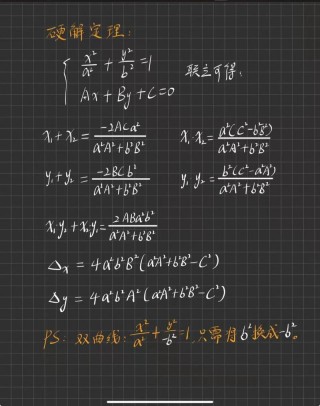 硬解定理:
x²/a² + y²/b² = 1
联立可得:
Ax + By + C = 0
x₁+x₂ = -2ACa²/(a²A²+b²B²)    x₁·x₂ = a²(C²-b²B²)/(a²A²+b²B²)
y₁+y₂ = -2BCb²/(a²A²+b²B²)    y₁y₂ = b²(C²-a²A²)/(a²A²+b²B²)
x₁y₂+x₂y₁ = 2ABa²b²/(a²A²+b²B²)
Δx = 4a²b²B²(a²A²+b²B²-C²)
Δy = 4a²b²A²(a²A²+b²B²-C²)
PS: 双曲线: x²/a² + y²/-b² = 1, 只需将 b² 换成 -b²。